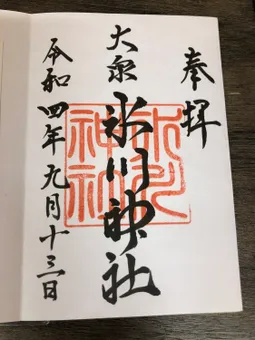 奉拝
大泉 氷川神社
令和四年九月十三日
氷川
神社